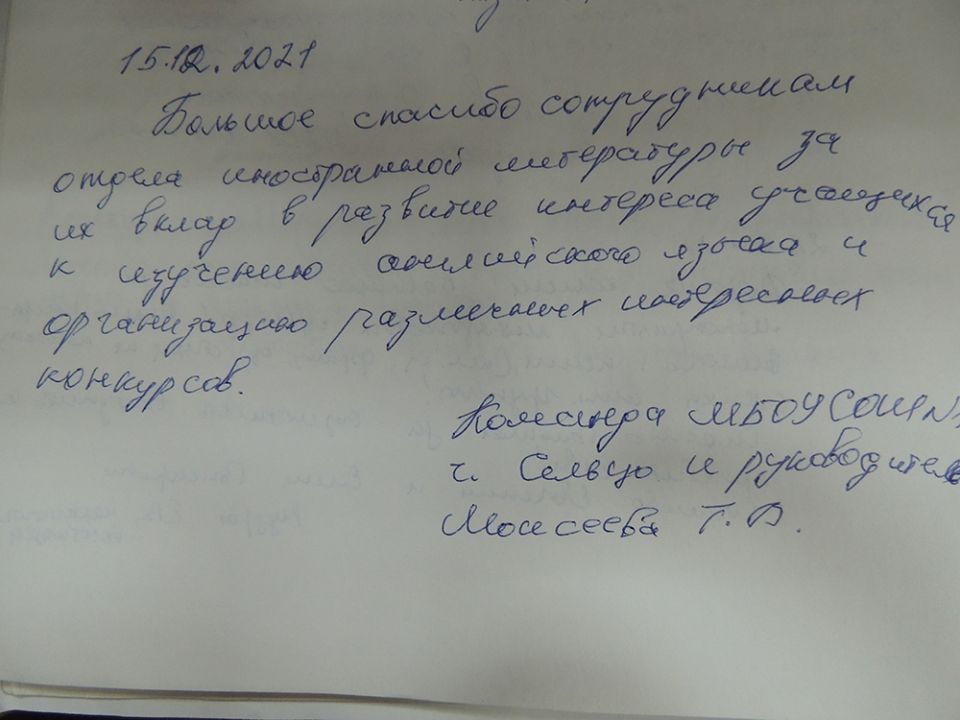 15.12.2021
Большое спасибо сотрудникам
отдела иностранной литературы за
их вклад в развитие интереса учащихся
к изучению английского языка и
организацию различных интересных
конкурсов.
Команда МБОУСОШ№
г. Сельцо и руководитель
Моисеева Т. В.